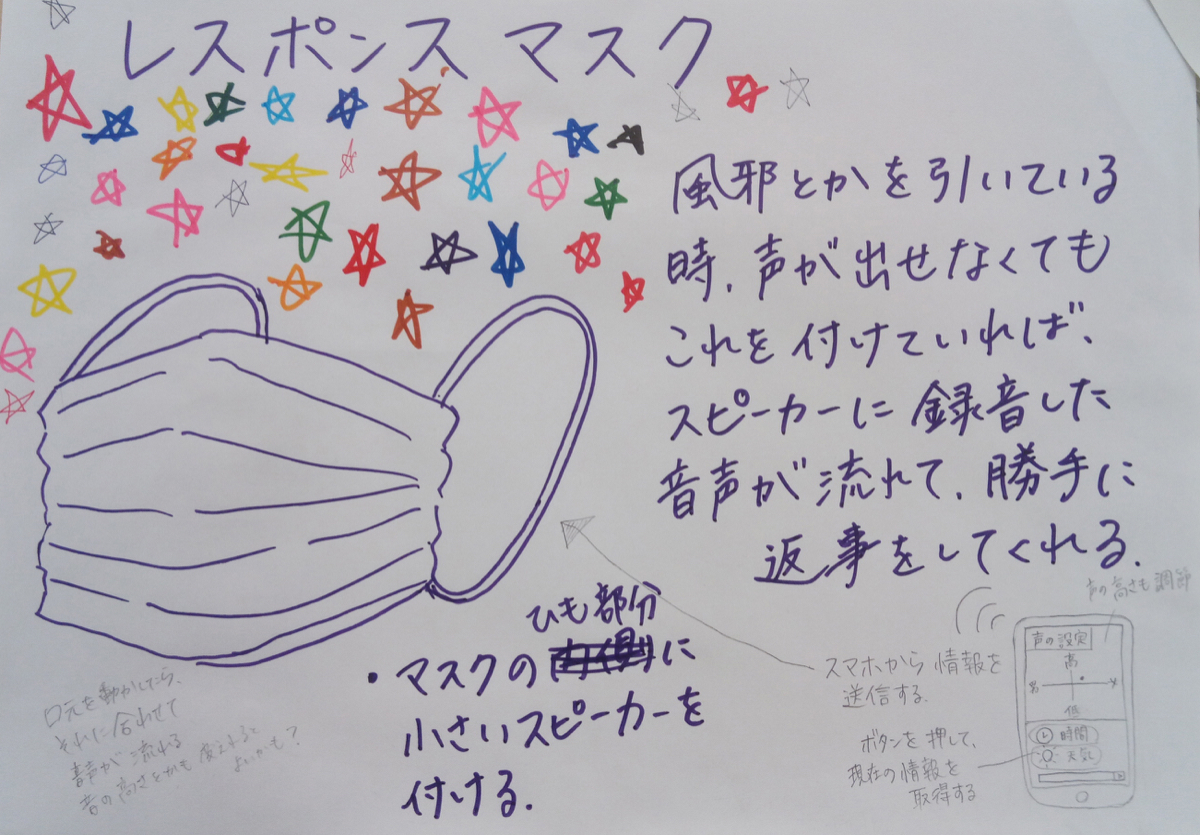 レスポンス マスク
風邪とかを引いている
時、声が出せなくても
これを付けていれば、
スピーカーに録音した
音声が流れて、勝手に
返事をしてくれる。
ひも部分
・マスクの に
小さいスピーカーを
付ける。
口元を動かしたら、
それに合わせて
音声が流れる
音の高さとかも変えれると
よいかも?
スマホから情報を
送信する。
ボタンを押して、
現在の情報を
取得する
声の高さも調節
声の設定
高
男 女
低
時間
天気